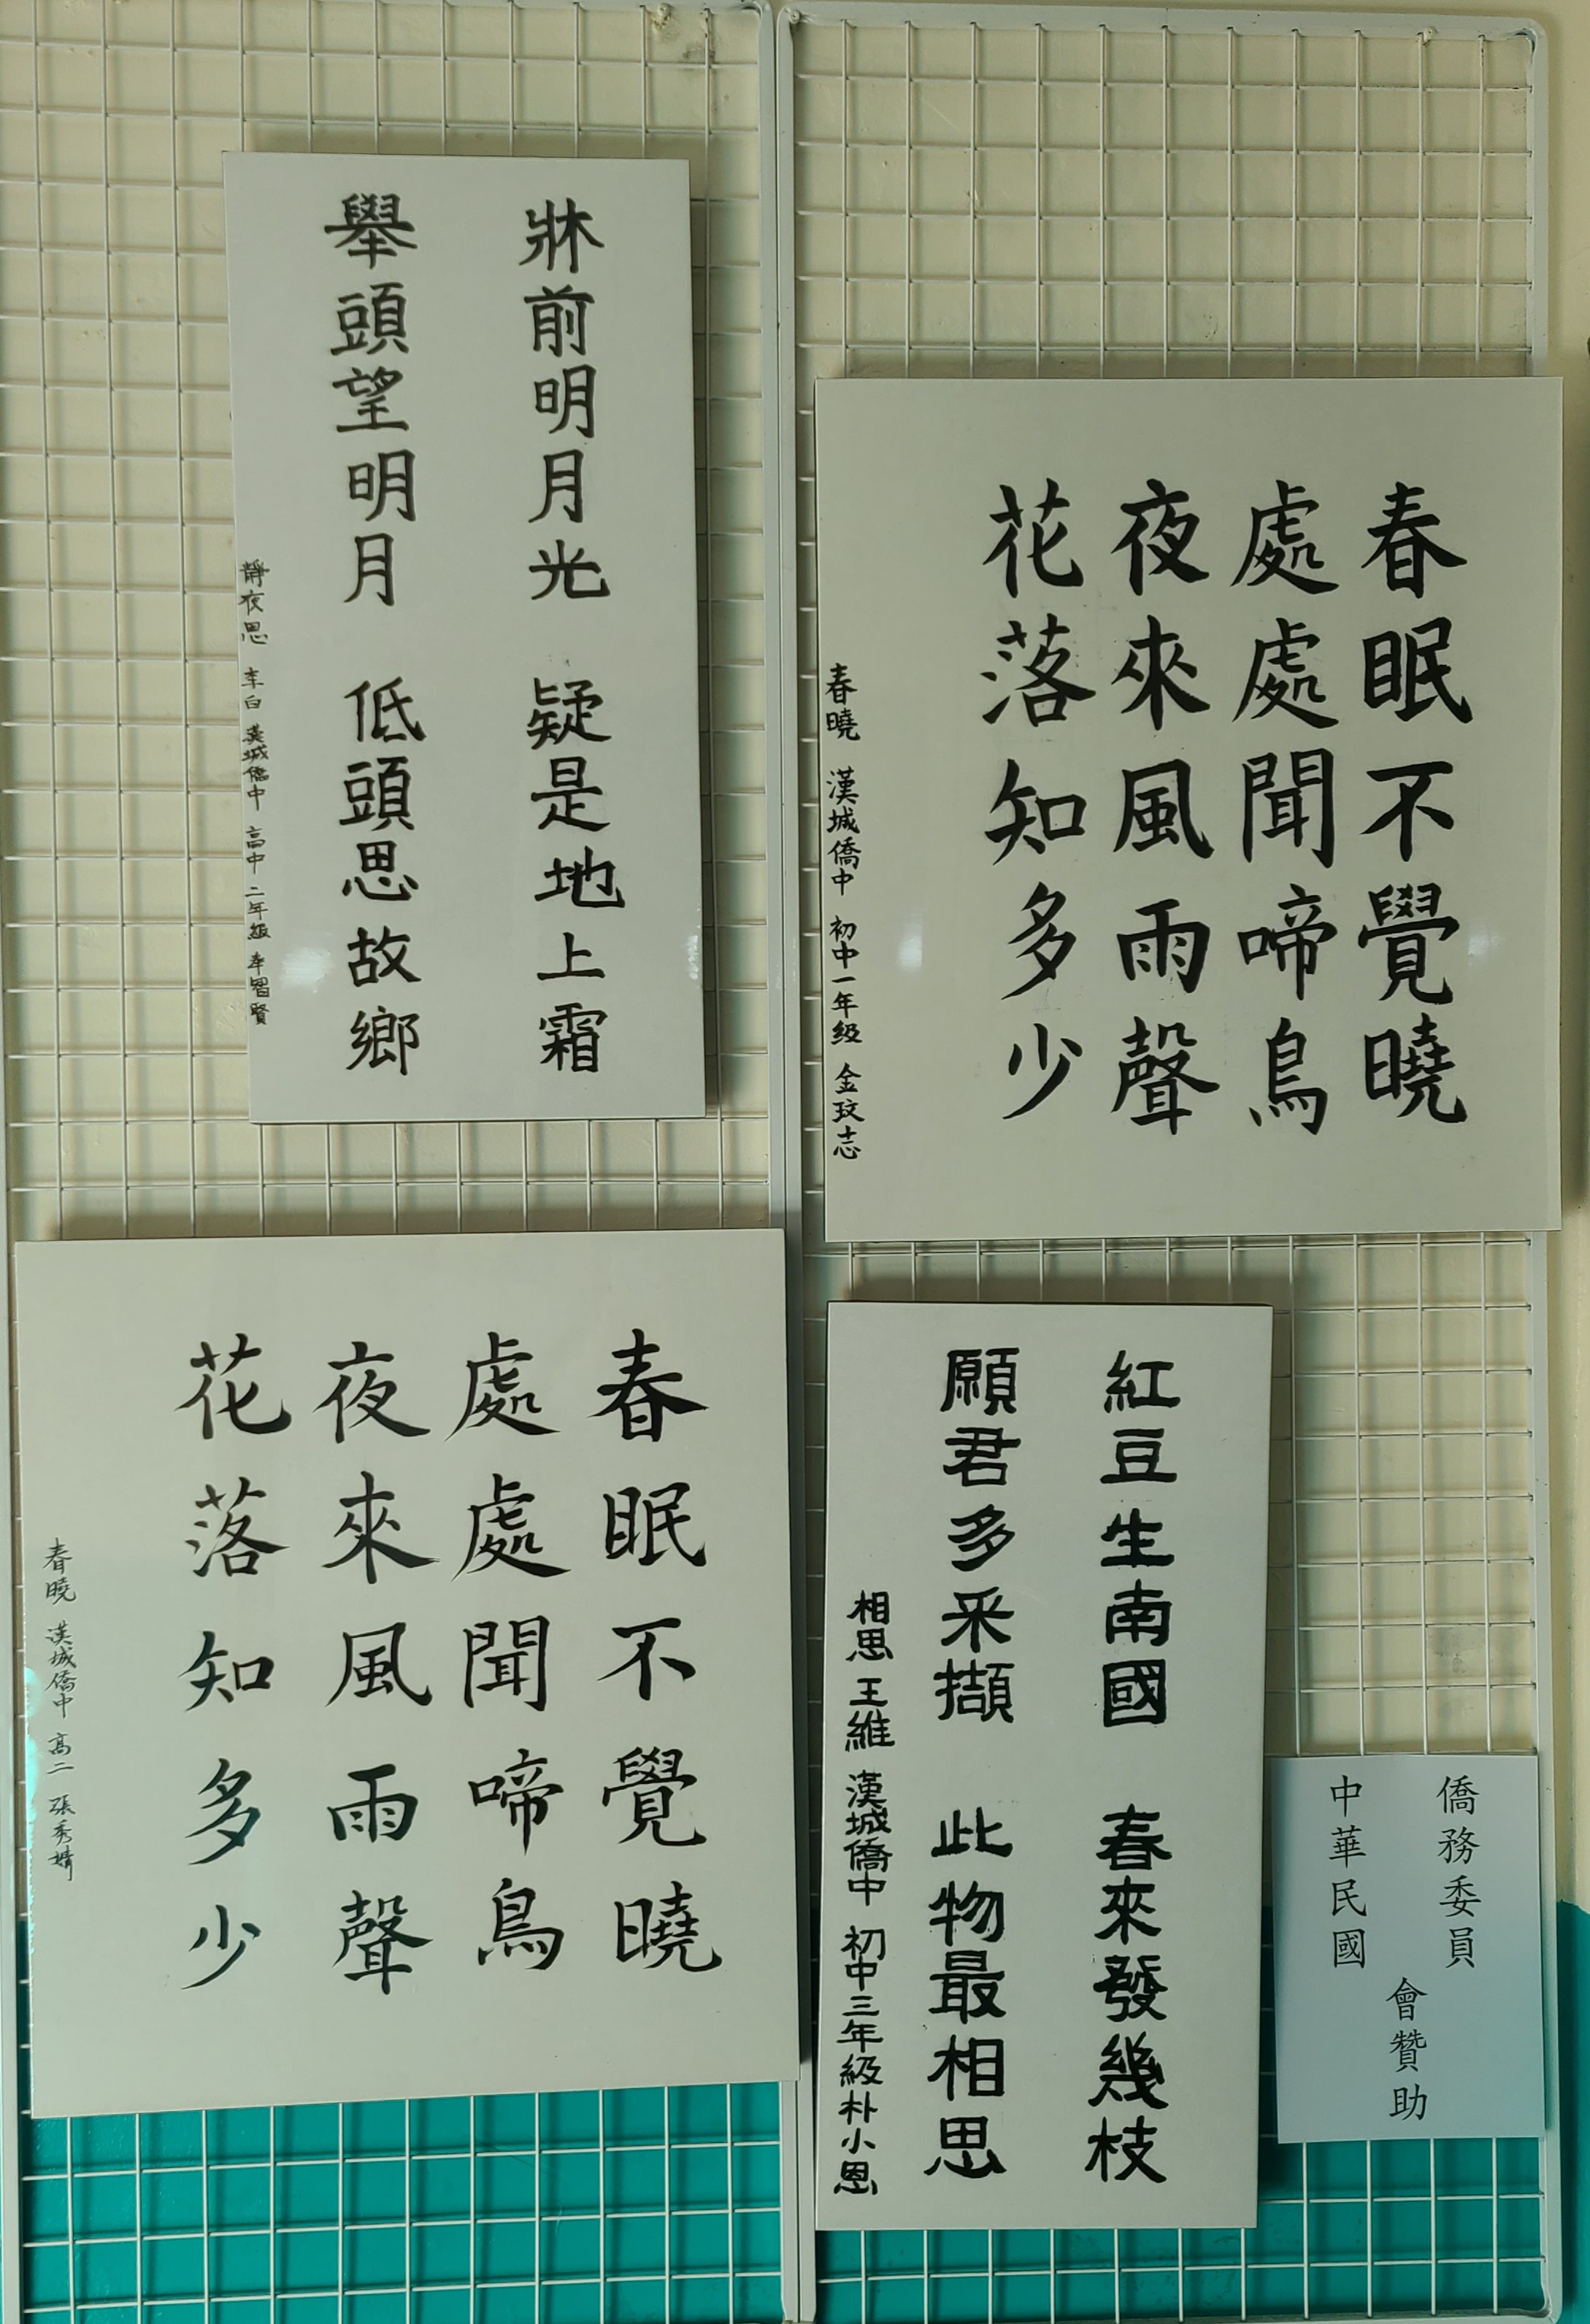 牀前明月光 疑是地上霜
舉頭望明月 低頭思故鄉
靜夜思 李白 漢城僑中 高中二年級 李智賢
春眠不覺曉
處處聞啼鳥
夜來風雨聲
花落知多少
春曉 漢城僑中 初中一年級 金玟志
春眠不覺曉
處處聞啼鳥
夜來風雨聲
花落知多少
春曉 漢城僑中 高二 張秀婧
紅豆生南國 春來發幾枝
願君多采擷 此物最相思
相思 王維 漢城僑中 初中三年級 朴小恩
中華民國
僑務委員
會贊助